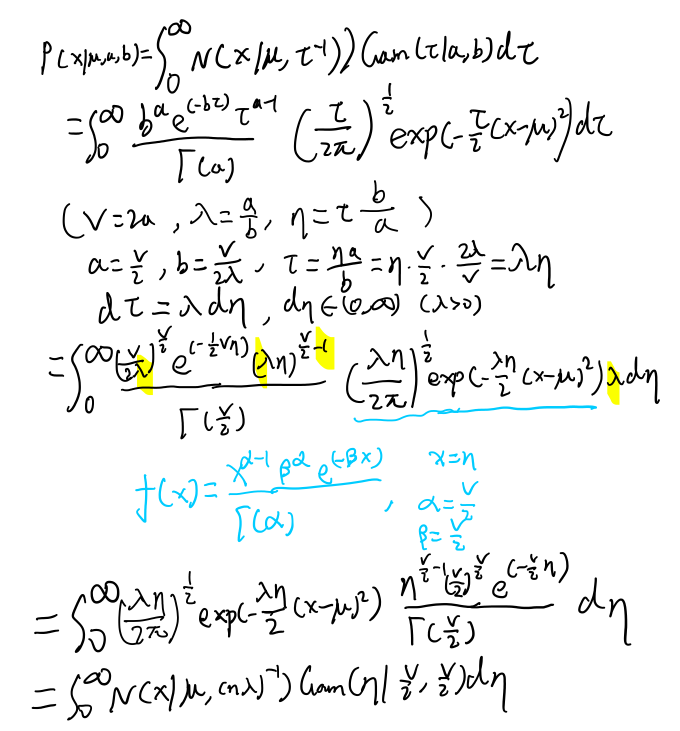 p(x|μ,a,b)=∫₀^∞ N(x|μ, τ⁻¹)) Gam(τ|a,b)dτ
=∫₀^∞ (b^a e^(-bτ) τ^(a-1))/Γ(a) (τ/2π)^(1/2) exp(-τ/2(x-μ)²)dτ
(ν=2a, λ=a/b, η=τ b/a)
a=ν/2, b=ν/2λ, τ=ηa/b=η·ν/2·2λ/ν=λη
dτ=λdη, dη∈(0,∞) (λ>0)
=∫₀^∞ ((ν/2λ)^(ν/2) e^(-1/2νη) (λη)^(ν/2-1))/Γ(ν/2) (λη/2π)^(1/2) exp(-λη/2(x-μ)²)λdη
f(x)=(x^(α-1) β^α e^(-βx))/Γ(α), x=η
α=ν/2
β=ν/2
=∫₀^∞ (λη/2π)^(1/2) exp(-λη/2(x-μ)²) (η^(ν/2-1) (ν/2)^(ν/2) e^(-ν/2η))/Γ(ν/2) dη
=∫₀^∞ N(x|μ, (ηλ)⁻¹) Gam(η|ν/2, ν/2)dη